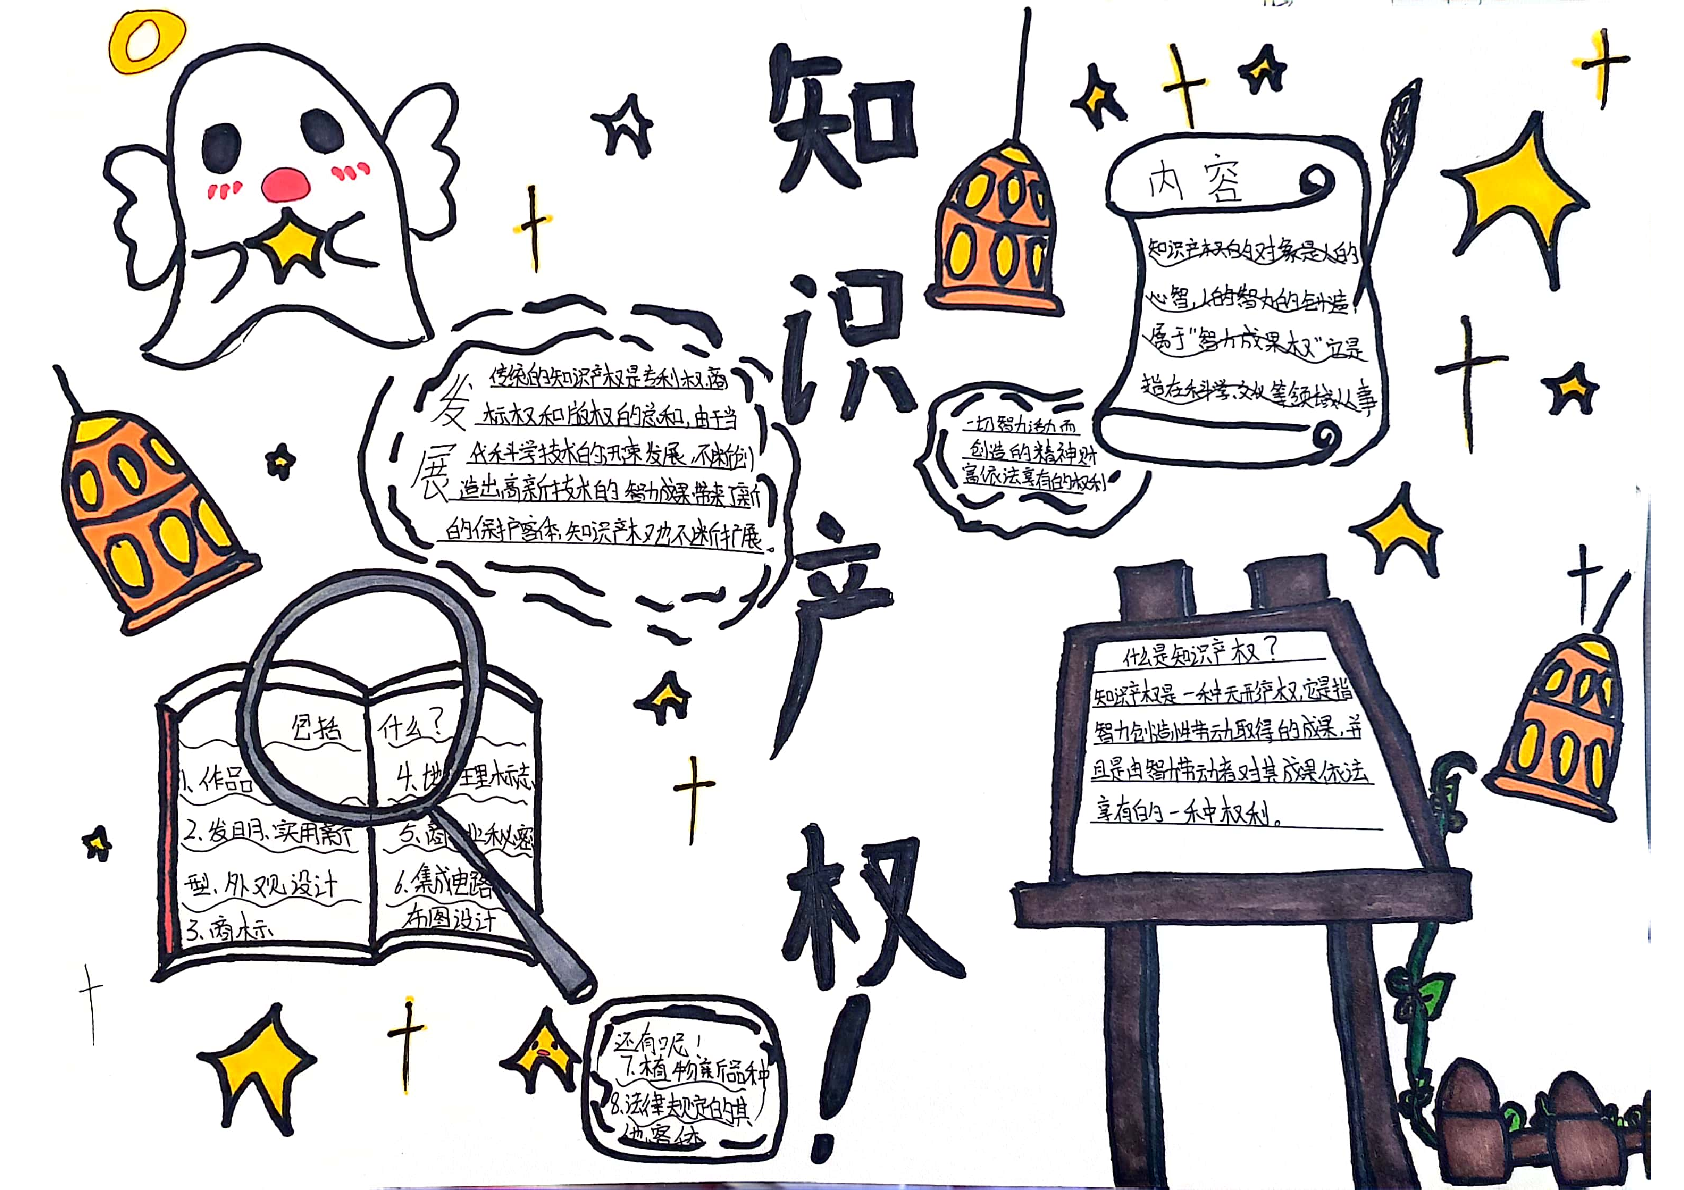 知识产权！
发展
传统的知识产权是专利权,商
标权和版权的总和,由于当
代科学技术的迅速发展,不断创
造出高新技术的智力成果带来了新
的保护客体,知识产权也不断扩展.
内容
知识产权的对象是人的
心智,人的智力的创造,
属于"智力成果权"它是
指在科学、文化等领域从事
一切智力活动而
创造的精神财
富依法享有的权利
什么是知识产权？
知识产权是一种无形产权,它是指
智力创造性劳动取得的成果,并
且是由智力劳动者对其成果依法
享有的一种权利。
包括什么？
1、作品
2、发明、实用新
型、外观设计
3、商标
4、地理标志
5、商业秘密
6、集成电路
布图设计
还有呢！
7、植物新品种
8、法律规定的其
他客体